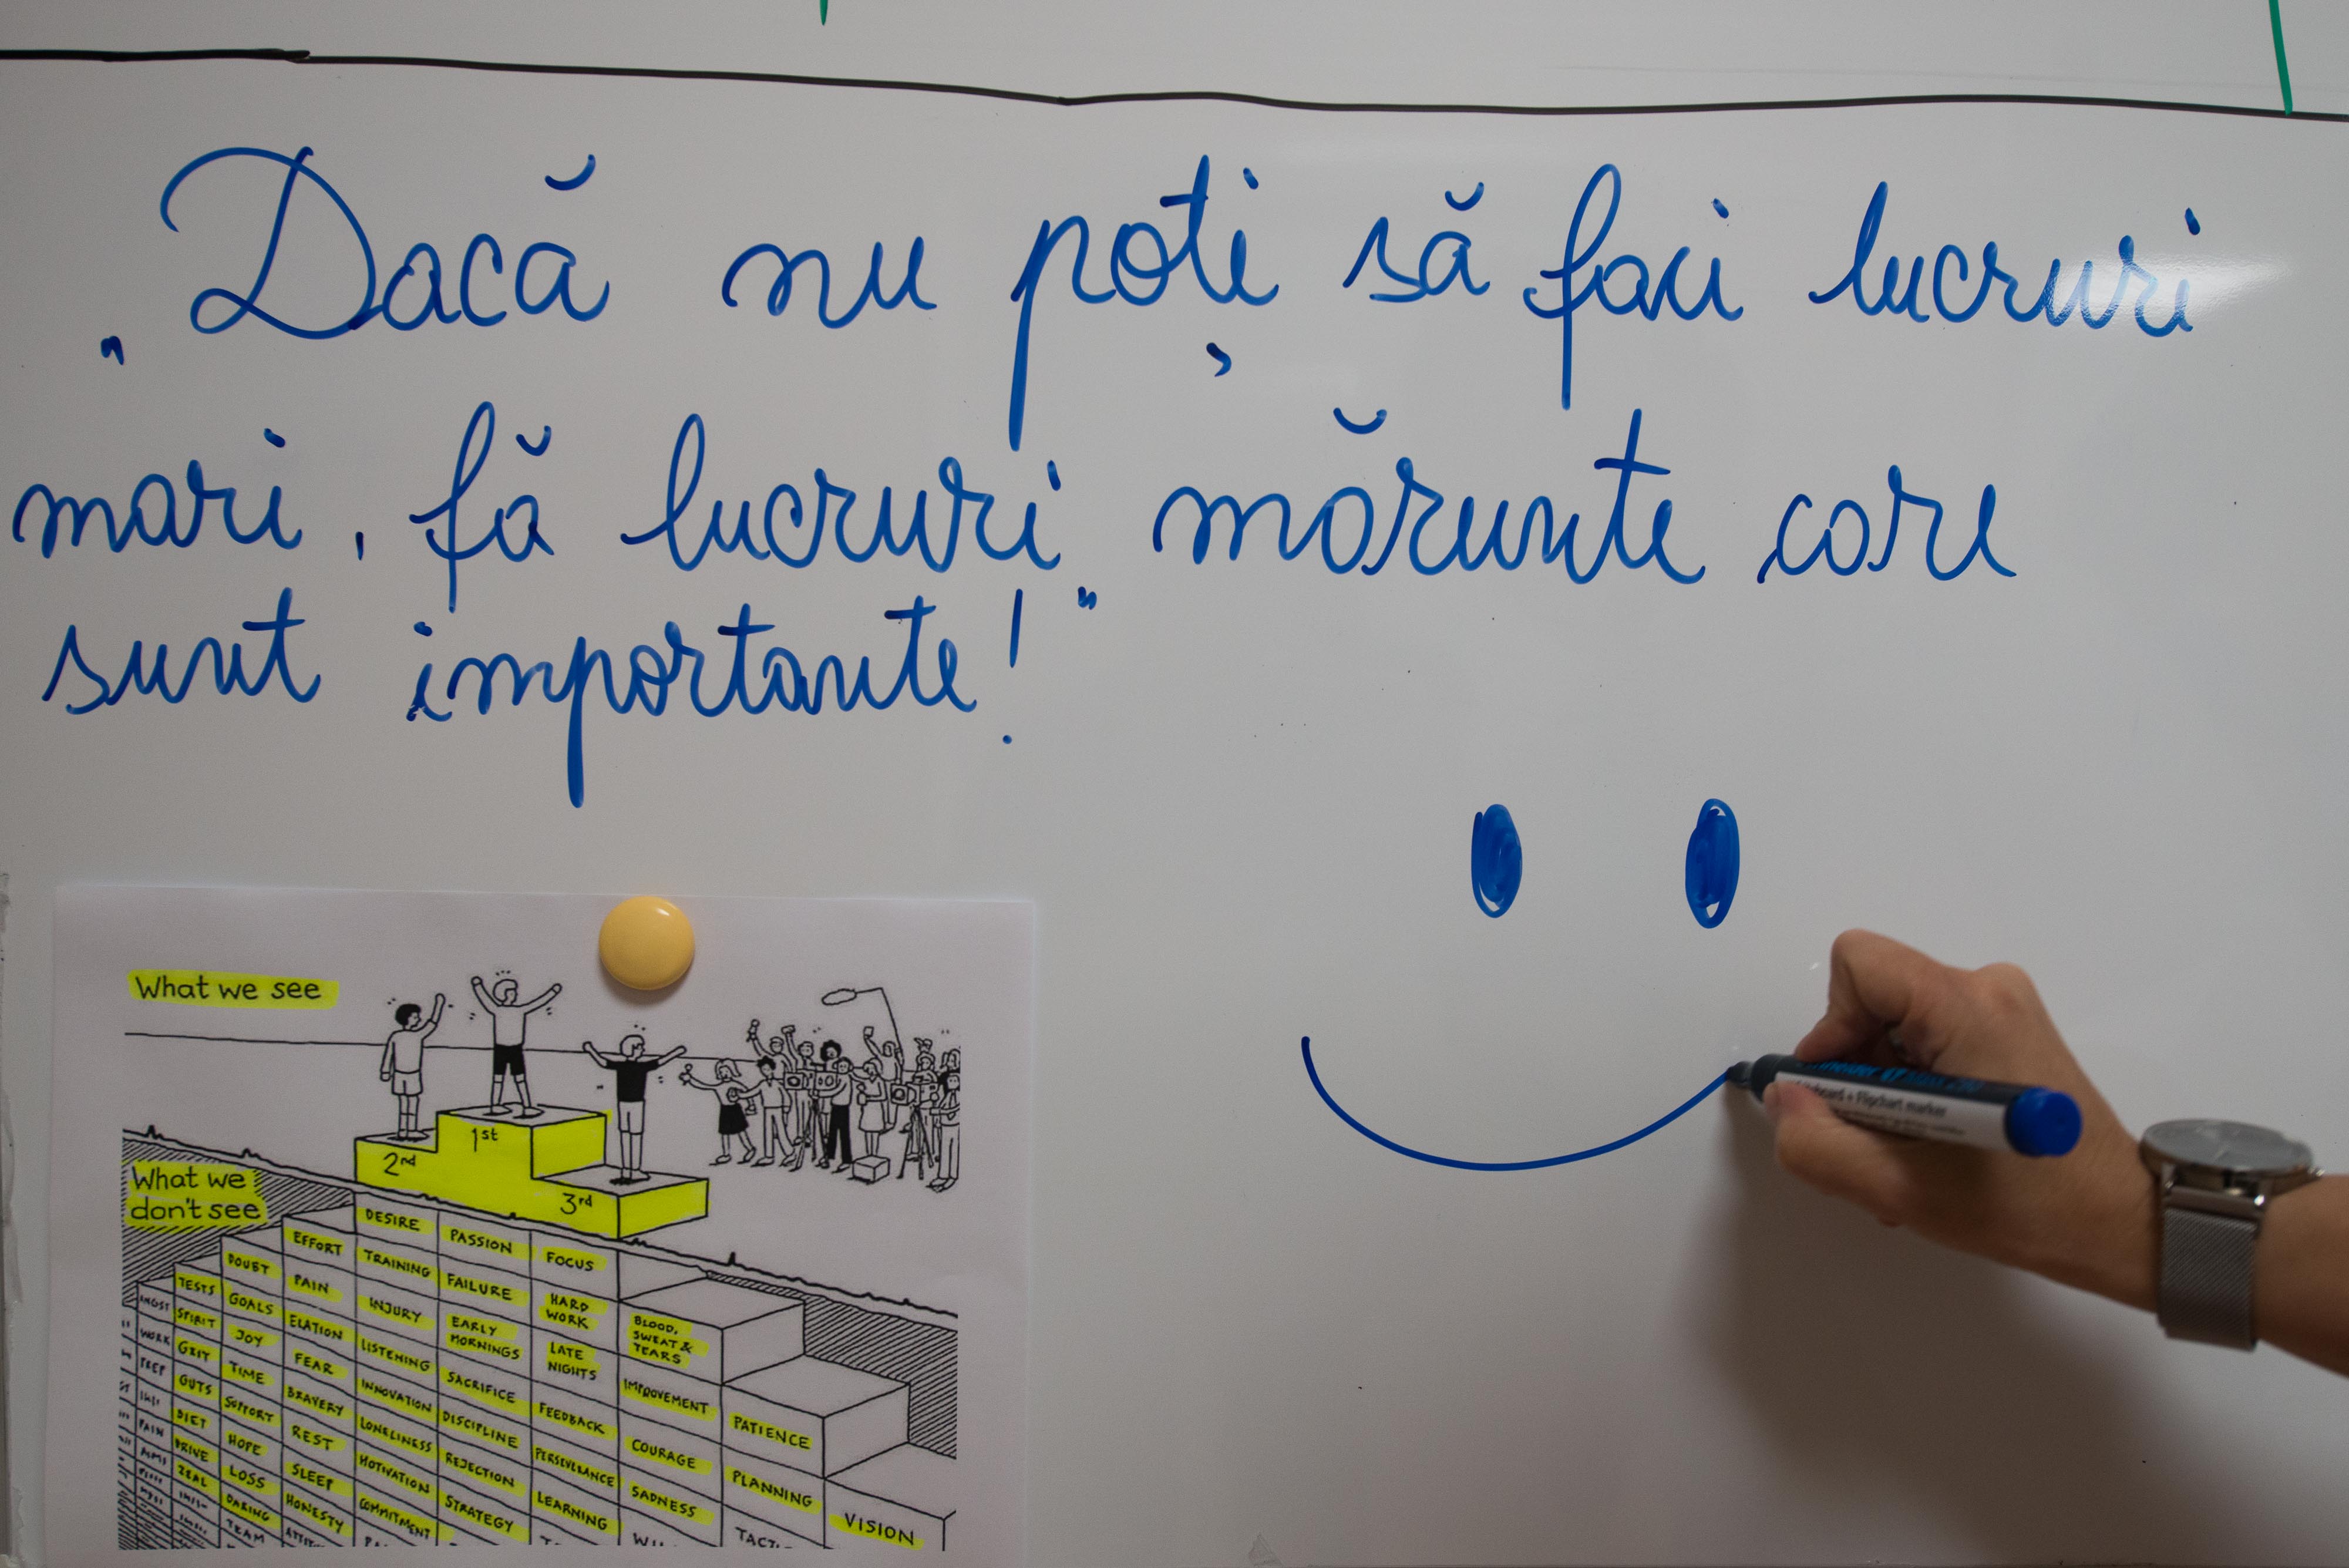 „Dacă nu poți să faci lucruri
mari, fă lucruri mărunte care
sunt importante!"
What we see
1st
2nd
3rd
What we
don't see
DESIRE PASSION FOCUS
EFFORT TRAINING FAILURE HARD WORK BLOOD, SWEAT & TEARS
DOUBT PAIN INJURY EARLY MORNINGS LATE NIGHTS IMPROVEMENT PATIENCE
TESTS GOALS ELATION LISTENING SACRIFICE FEEDBACK COURAGE PLANNING VISION
SPIRIT JOY FEAR INNOVATION DISCIPLINE PERSEVERANCE SADNESS
WORK GRIT TIME BRAVERY LONELINESS REJECTION LEARNING
PREP GUTS SUPPORT REST MOTIVATION STRATEGY
DIET HOPE SLEEP COMMITMENT
PAIN DRIVE LOSS HONESTY
ZEAL DARING
TEAM
Flipchart marker